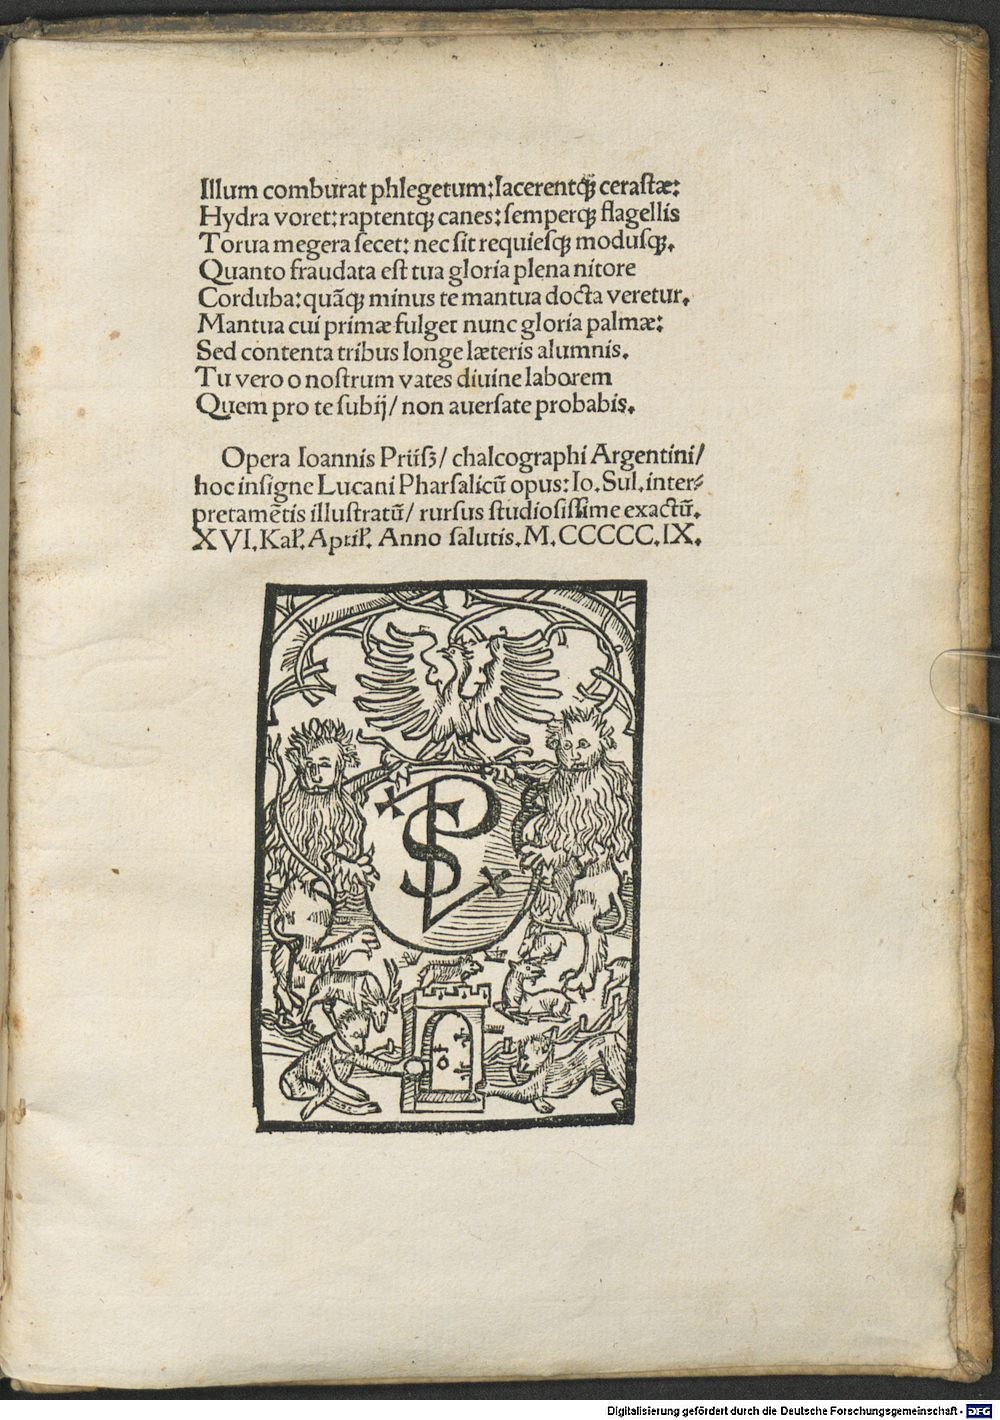 Illum comburat phlegetum: lacerentq́ꝫ ceraſtæ:
Hydra voret: raptentqꝫ canes: ſemperqꝫ flagellis
Torua megera ſecet: nec ſit requieſqꝫ moduſqꝫ.
Quanto fraudata eſt tua gloria plena nitore
Corduba: quãqꝫ minus te mantua docta veretur.
Mantua cui primæ fulget nunc gloria palmæ:
Sed contenta tribus longe læteris alumnis.
Tu vero o noſtrum vates diuine laborem
Quem pro te ſubij/ non auerſate probabis.
Opera Ioannis Prüſꝫ/ chalcographi Argentini/
hoc inſigne Lucani Pharſalicũ opus: Io. Sul. inter⸗
pretamẽtis illuſtratũ/ rurſus ſtudioſiſſime exactũ.
XVI. Kaľ. Apriľ. Anno ſalutis. M. CCCCC. IX.
SP
Digitalisierung gefördert durch die Deutsche Forschungsgemeinschaft - DFG